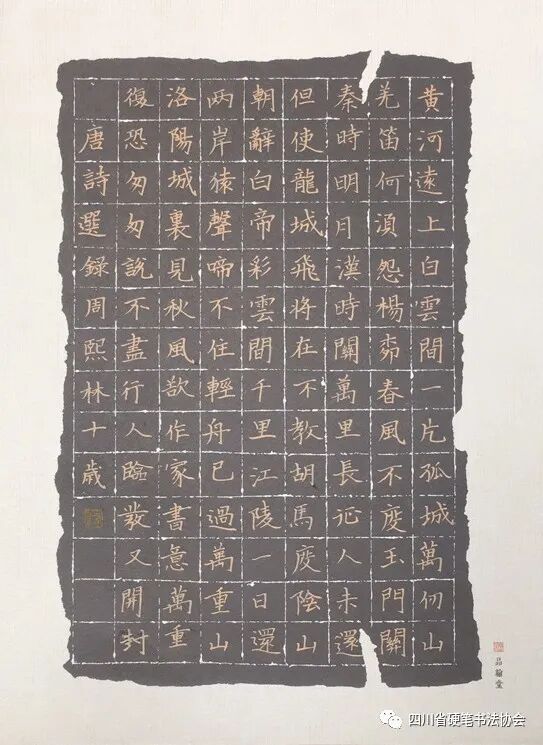 黄河遠上白雲間一片孤城萬仞山
羌笛何湏怨楊栁春風不度玉門關
秦時明月漢時關萬里長征人未還
但使龍城飛將在不教胡馬度陰山
朝辭白帝彩雲間千里江陵一日還
两岸猿聲啼不住輕舟已過萬重山
洛陽城裏見秋風欲作家書意萬重
復恐匆匆說不盡行人臨發又開封
唐詩選錄周熙林十歲
品翰堂
四川省硬笔书法协会